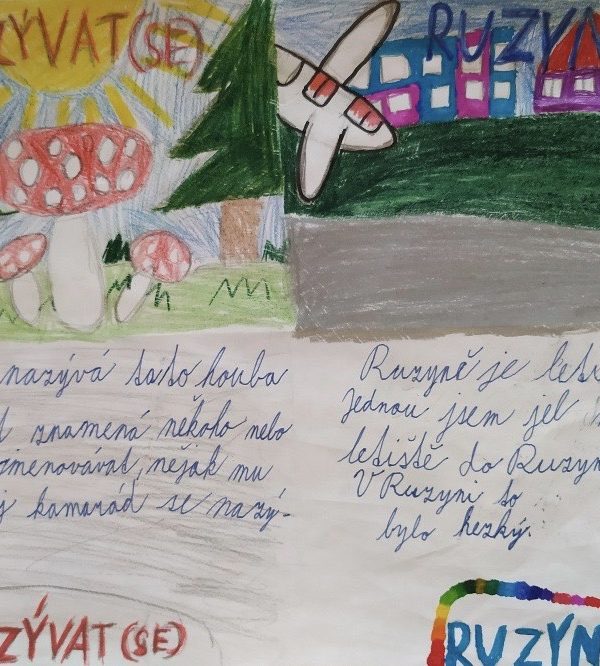 ZÝVAT(SE)
nazývá tato houba
znamená někoho nebo
ojmenovávat, nějak mu
j kamarád se nazý-
ZÝVAT (SE)
RUZYN
Ruzyně je leti
Jednou jsem jel
letiště do Ruzyn
V Ruzyni to
bylo hezký.
RUZYN